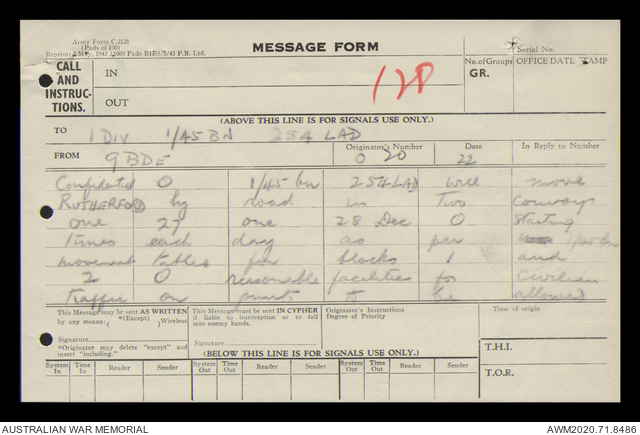 Army Form C.2128
(Pads of 100)
Reprint May, 1943 Pads P.B. Ltd.
MESSAGE FORM
Serial No.
CALL AND INSTRUC- TIONS.
IN
No. of Groups
GR.
OFFICE DATE STAMP
128
OUT
(ABOVE THIS LINE IS FOR SIGNALS USE ONLY.)
TO 1 DIV 1/45 BN 254 LAD
FROM 9 BDE Originator's Number O 20 Date 22 In Reply to Number
Confidential O 1/45 bn 254 LAD will move
RUTHERFORD by road in Two Convoys
one 27 one 28 Dec O Starting
times each day as per 1/45 bn
movement tables for blocks 1 and
2 O reasonable facilities for Civilian
traffic on to be allowed
This Message may be sent AS WRITTEN
by any means: *(Except) Wireless
Signature
*Originator may delete "except" and
insert "including."
This Message must be sent IN CYPHER
if liable to interception or to fall
into enemy hands.
Signature
Originator's Instructions
Degree of Priority
Time of origin
T.H.I.
T.O.R.
(BELOW THIS LINE IS FOR SIGNALS USE ONLY.)
System In Time In Reader Sender System Out Time Out Reader Sender System Out Time Out Reader Sender
AUSTRALIAN WAR MEMORIAL AWM2020.71.8486